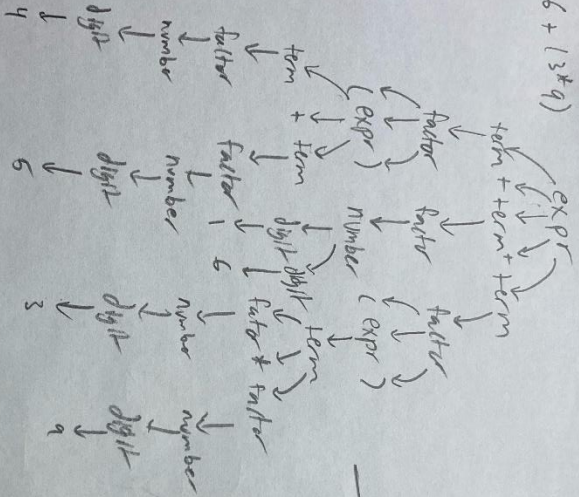 6 + (3*9)
expr
term + term + term
factor factor factor
( expr ) number ( expr )
term + term digit digit term
factor factor 1 6 fator * factor
number number number number
digit digit digit digit
4 5 3 9